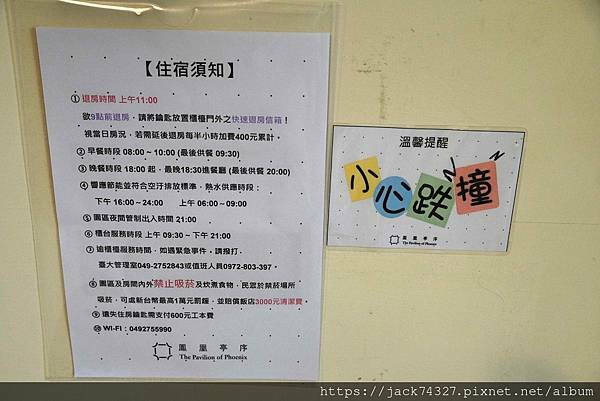 【住宿須知】
① 退房時間 上午11:00
欲9點前退房，請將鑰匙放置櫃檯門外之快速退房信箱！
視當日房況，若需延後退房每半小時加費400元累計。
② 早餐時段 08:00 ~ 10:00 (最後供餐 09:30)
③ 晚餐時段 18:00 起，最晚18:30進餐廳 (最後供餐 20:00)
④ 響應節能並符合空汙排放標準，熱水供應時段：
下午 16:00～24:00 上午 06:00～09:00
⑤ 園區夜間管制出入時間 21:00
⑥ 櫃台服務時段 上午 09:30 ~ 下午 21:00
⑦ 逾櫃檯服務時間，如遇緊急事件，請撥打
臺大管理室049-2752843或值班人員0972-803-397。
⑧ 園區及房間內外禁止吸菸及炊煮食物，民眾於禁菸場所
吸菸，可處新台幣最高1萬元罰鍰，並賠償飯店3000元清潔費。
⑨ 遺失住房鑰匙需支付600元工本費
⑩ WI-FI：0492755990
鳳凰亭序
The Pavilion of Phoenix
溫馨提醒
小心跌撞
鳳凰亭序
The Pavilion of Phoenix
https://jack74327.pixnet.net/album